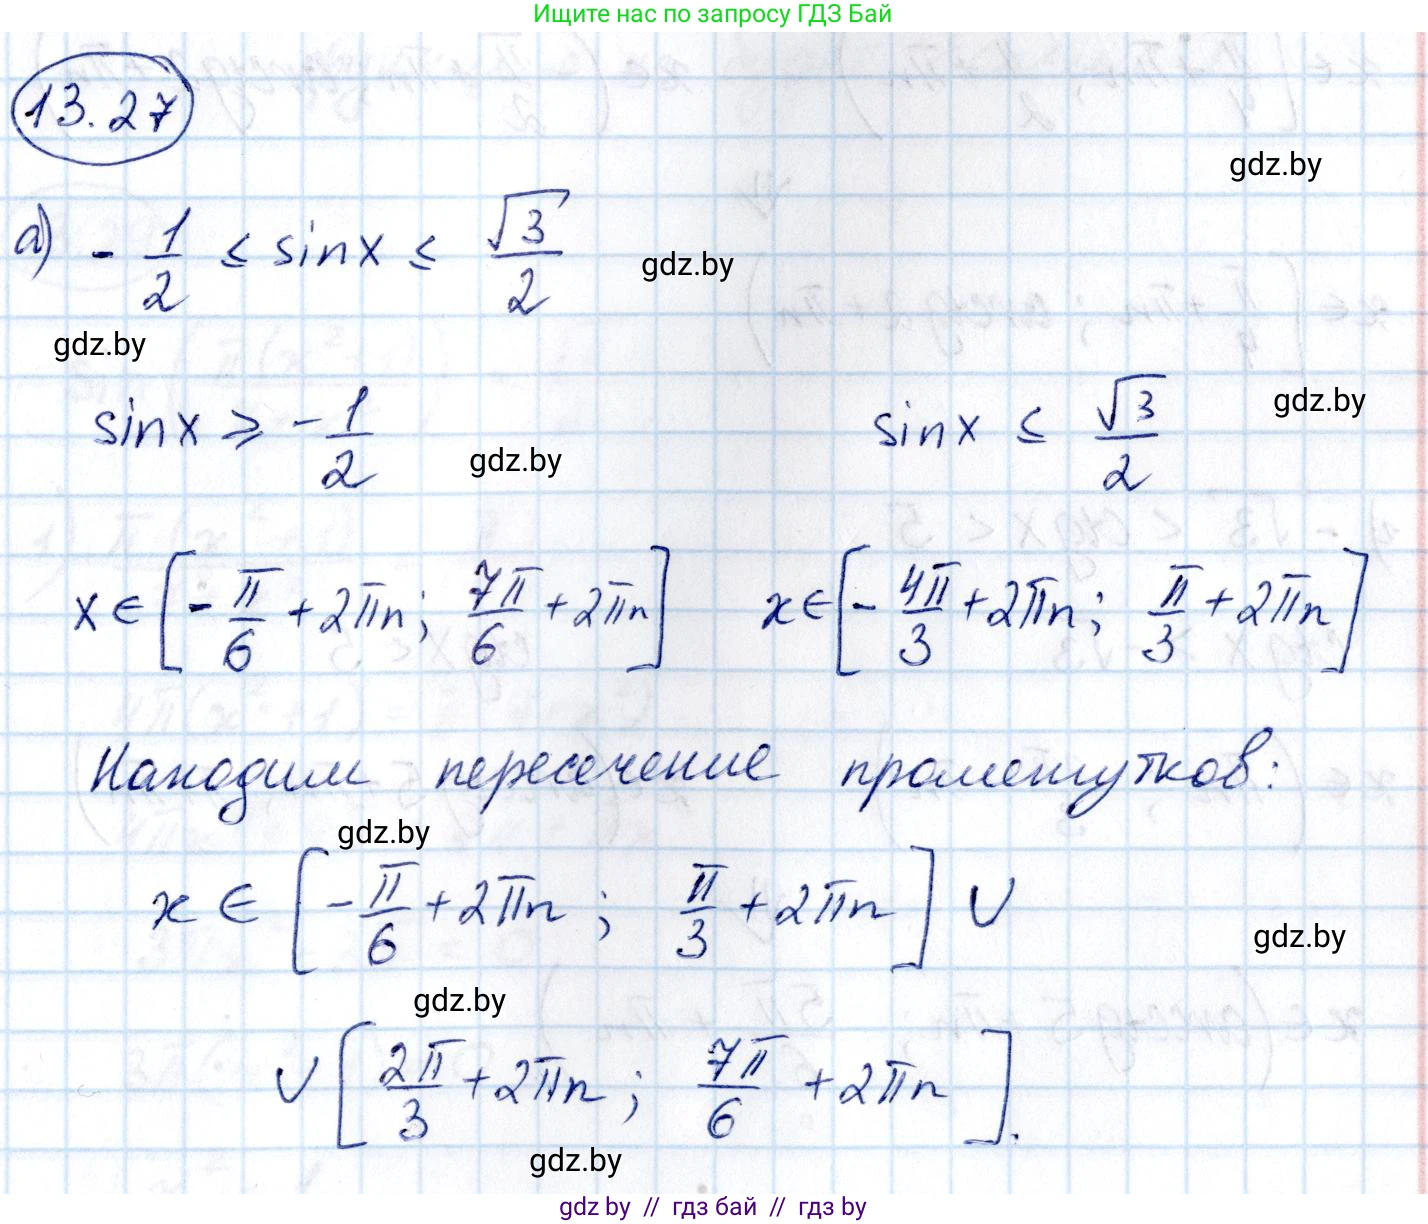 Ищите нас по запросу ГДЗ Бай
13.27
gdz.by
а) -1/2 ≤ sinx ≤ √3/2
gdz.by
gdz.by
sinx ⩾ -1/2 sinx ≤ √3/2
gdz.by
gdz.by
x ∈ [-π/6 + 2πn; 7π/6 + 2πn] x ∈ [-4π/3 + 2πn; π/3 + 2πn]
Находим пересечение промежутков:
gdz.by
x ∈ [-π/6 + 2πn; π/3 + 2πn] ∪
gdz.by
gdz.by
∪ [2π/3 + 2πn; 7π/6 + 2πn].
gdz.by
gdz by // гдз бай // гдз by